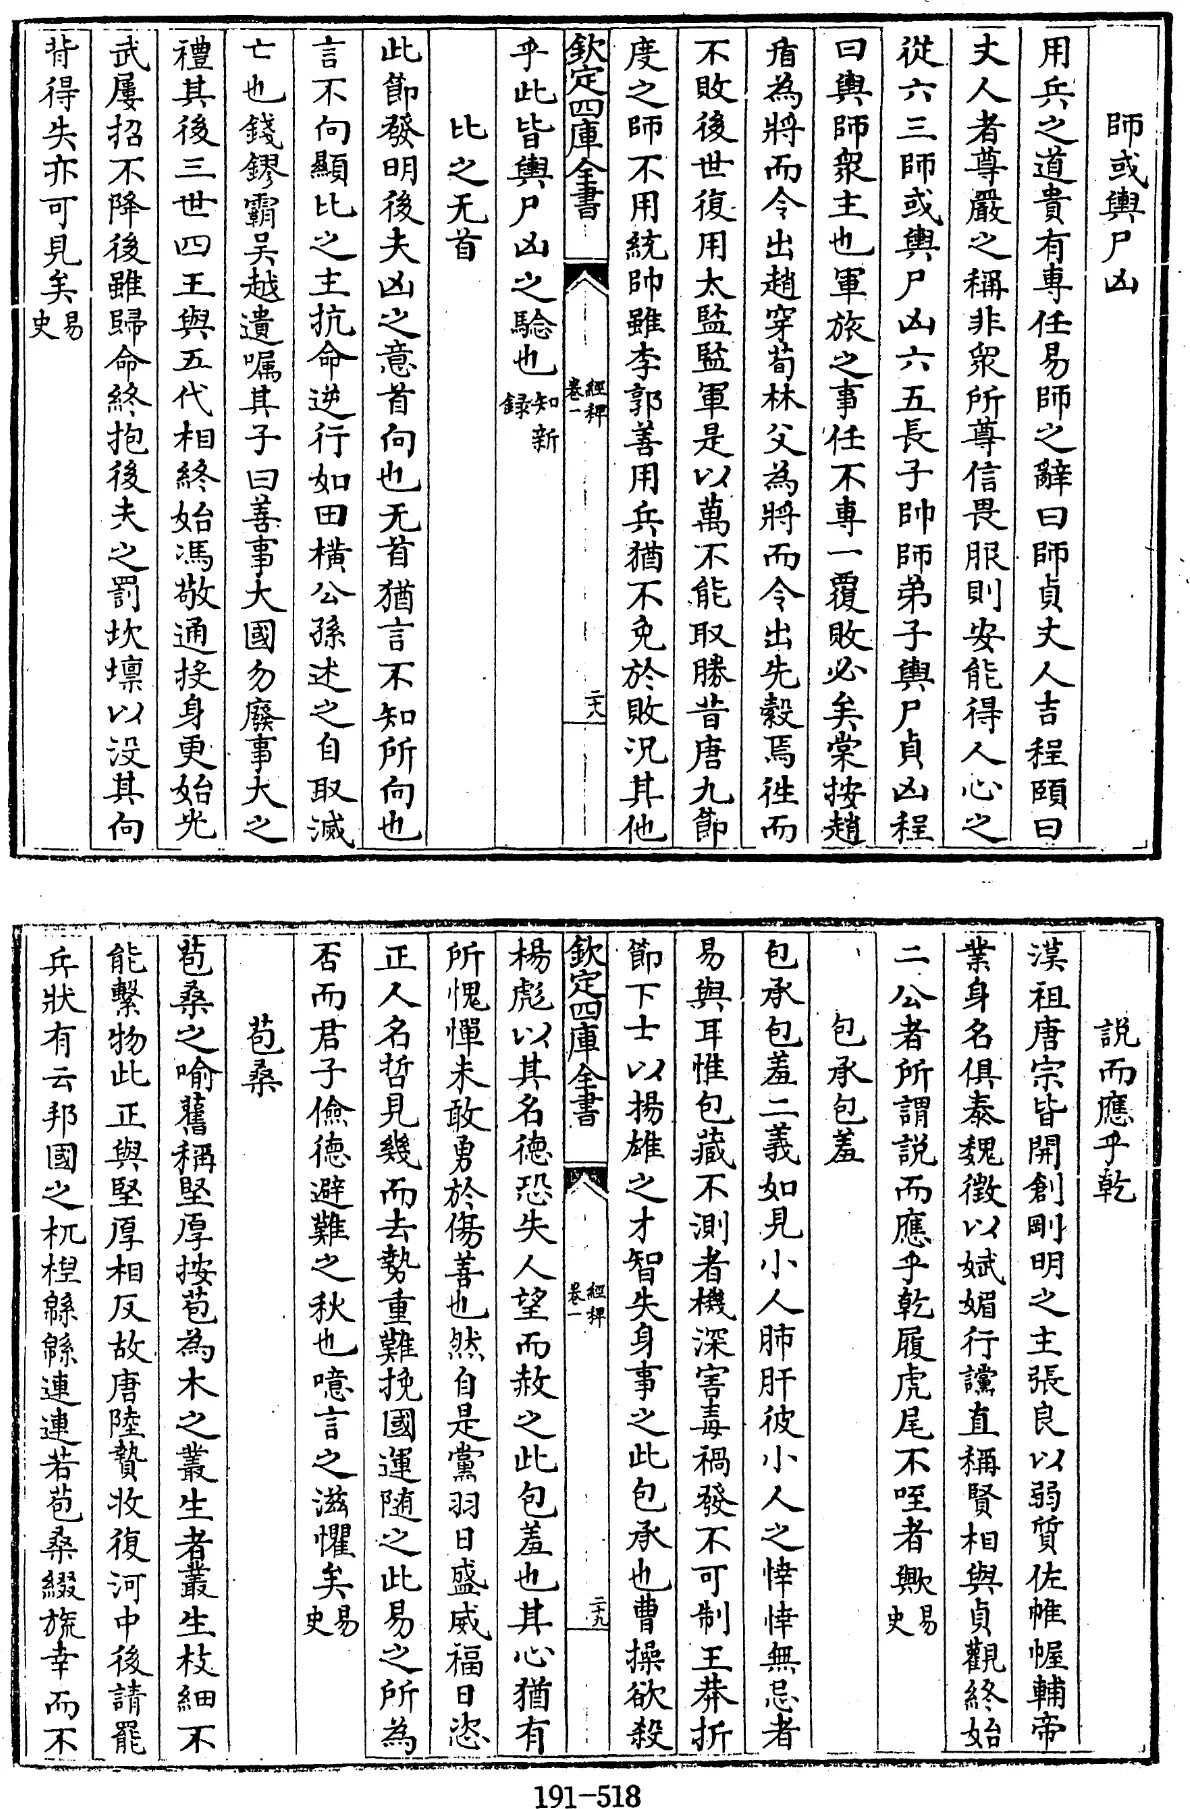 師或輿尸凶
用兵之道貴有專任易師之辭曰師貞丈人吉程頤曰
丈人者尊嚴之稱非衆所尊信畏服則安能得人心之
從六三師或輿尸凶六五長子帥師弟子輿尸貞凶程
曰輿師衆主也軍旅之事任不專一覆敗必矣棠按趙
盾為將而令出趙穿荀林父為將而令出先縠焉徃而
不敗後世復用太監監軍是以萬不能取勝昔唐九節
度之師不用統帥雖李郭善用兵猶不免於敗況其他
欽定四庫全書
經稗
卷一
二十八
乎此皆輿尸凶之驗也知新
録
比之无首
此節發明後夫凶之意首向也无首猶言不知所向也
言不向顯比之主抗命逆行如田橫公孫述之自取滅
亡也錢鏐霸吴越遺囑其子曰善事大國勿廢事大之
禮其後三世四王與五代相終始馮敬通挍身更始光
武屢招不降後雖歸命終抱後夫之罰坎壈以没其向
背得失亦可見矣易
史
説而應乎乾
漢祖唐宗皆開創剛明之主張良以弱質佐帷幄輔帝
業身名俱泰魏徴以娬媚行讜直稱賢相與貞觀終始
二公者所謂説而應乎乾履虎尾不咥者歟易
史
包承包羞
包承包羞二義如見小人肺肝彼小人之悻悻無忌者
易與耳惟包藏不測者機深害毒禍發不可制王莽折
節下士以揚雄之才智失身事之此包承也曹操欲殺
欽定四庫全書
經稗
卷一
二十九
楊彪以其名德恐失人望而赦之此包羞也其心猶有
所愧憚未敢勇於傷善也然自是黨羽日盛威福日恣
正人名哲見幾而去勢重難挽國運随之此易之所為
否而君子儉德避難之秋也噫言之滋懼矣易
史
苞桑
苞桑之喻舊稱堅厚按苞為木之叢生者叢生枝細不
能繫物此正與堅厚相反故唐陸贄收復河中後請罷
兵狀有云邦國之杌桯緜緜連連若苞桑綴旒幸而不
191-518